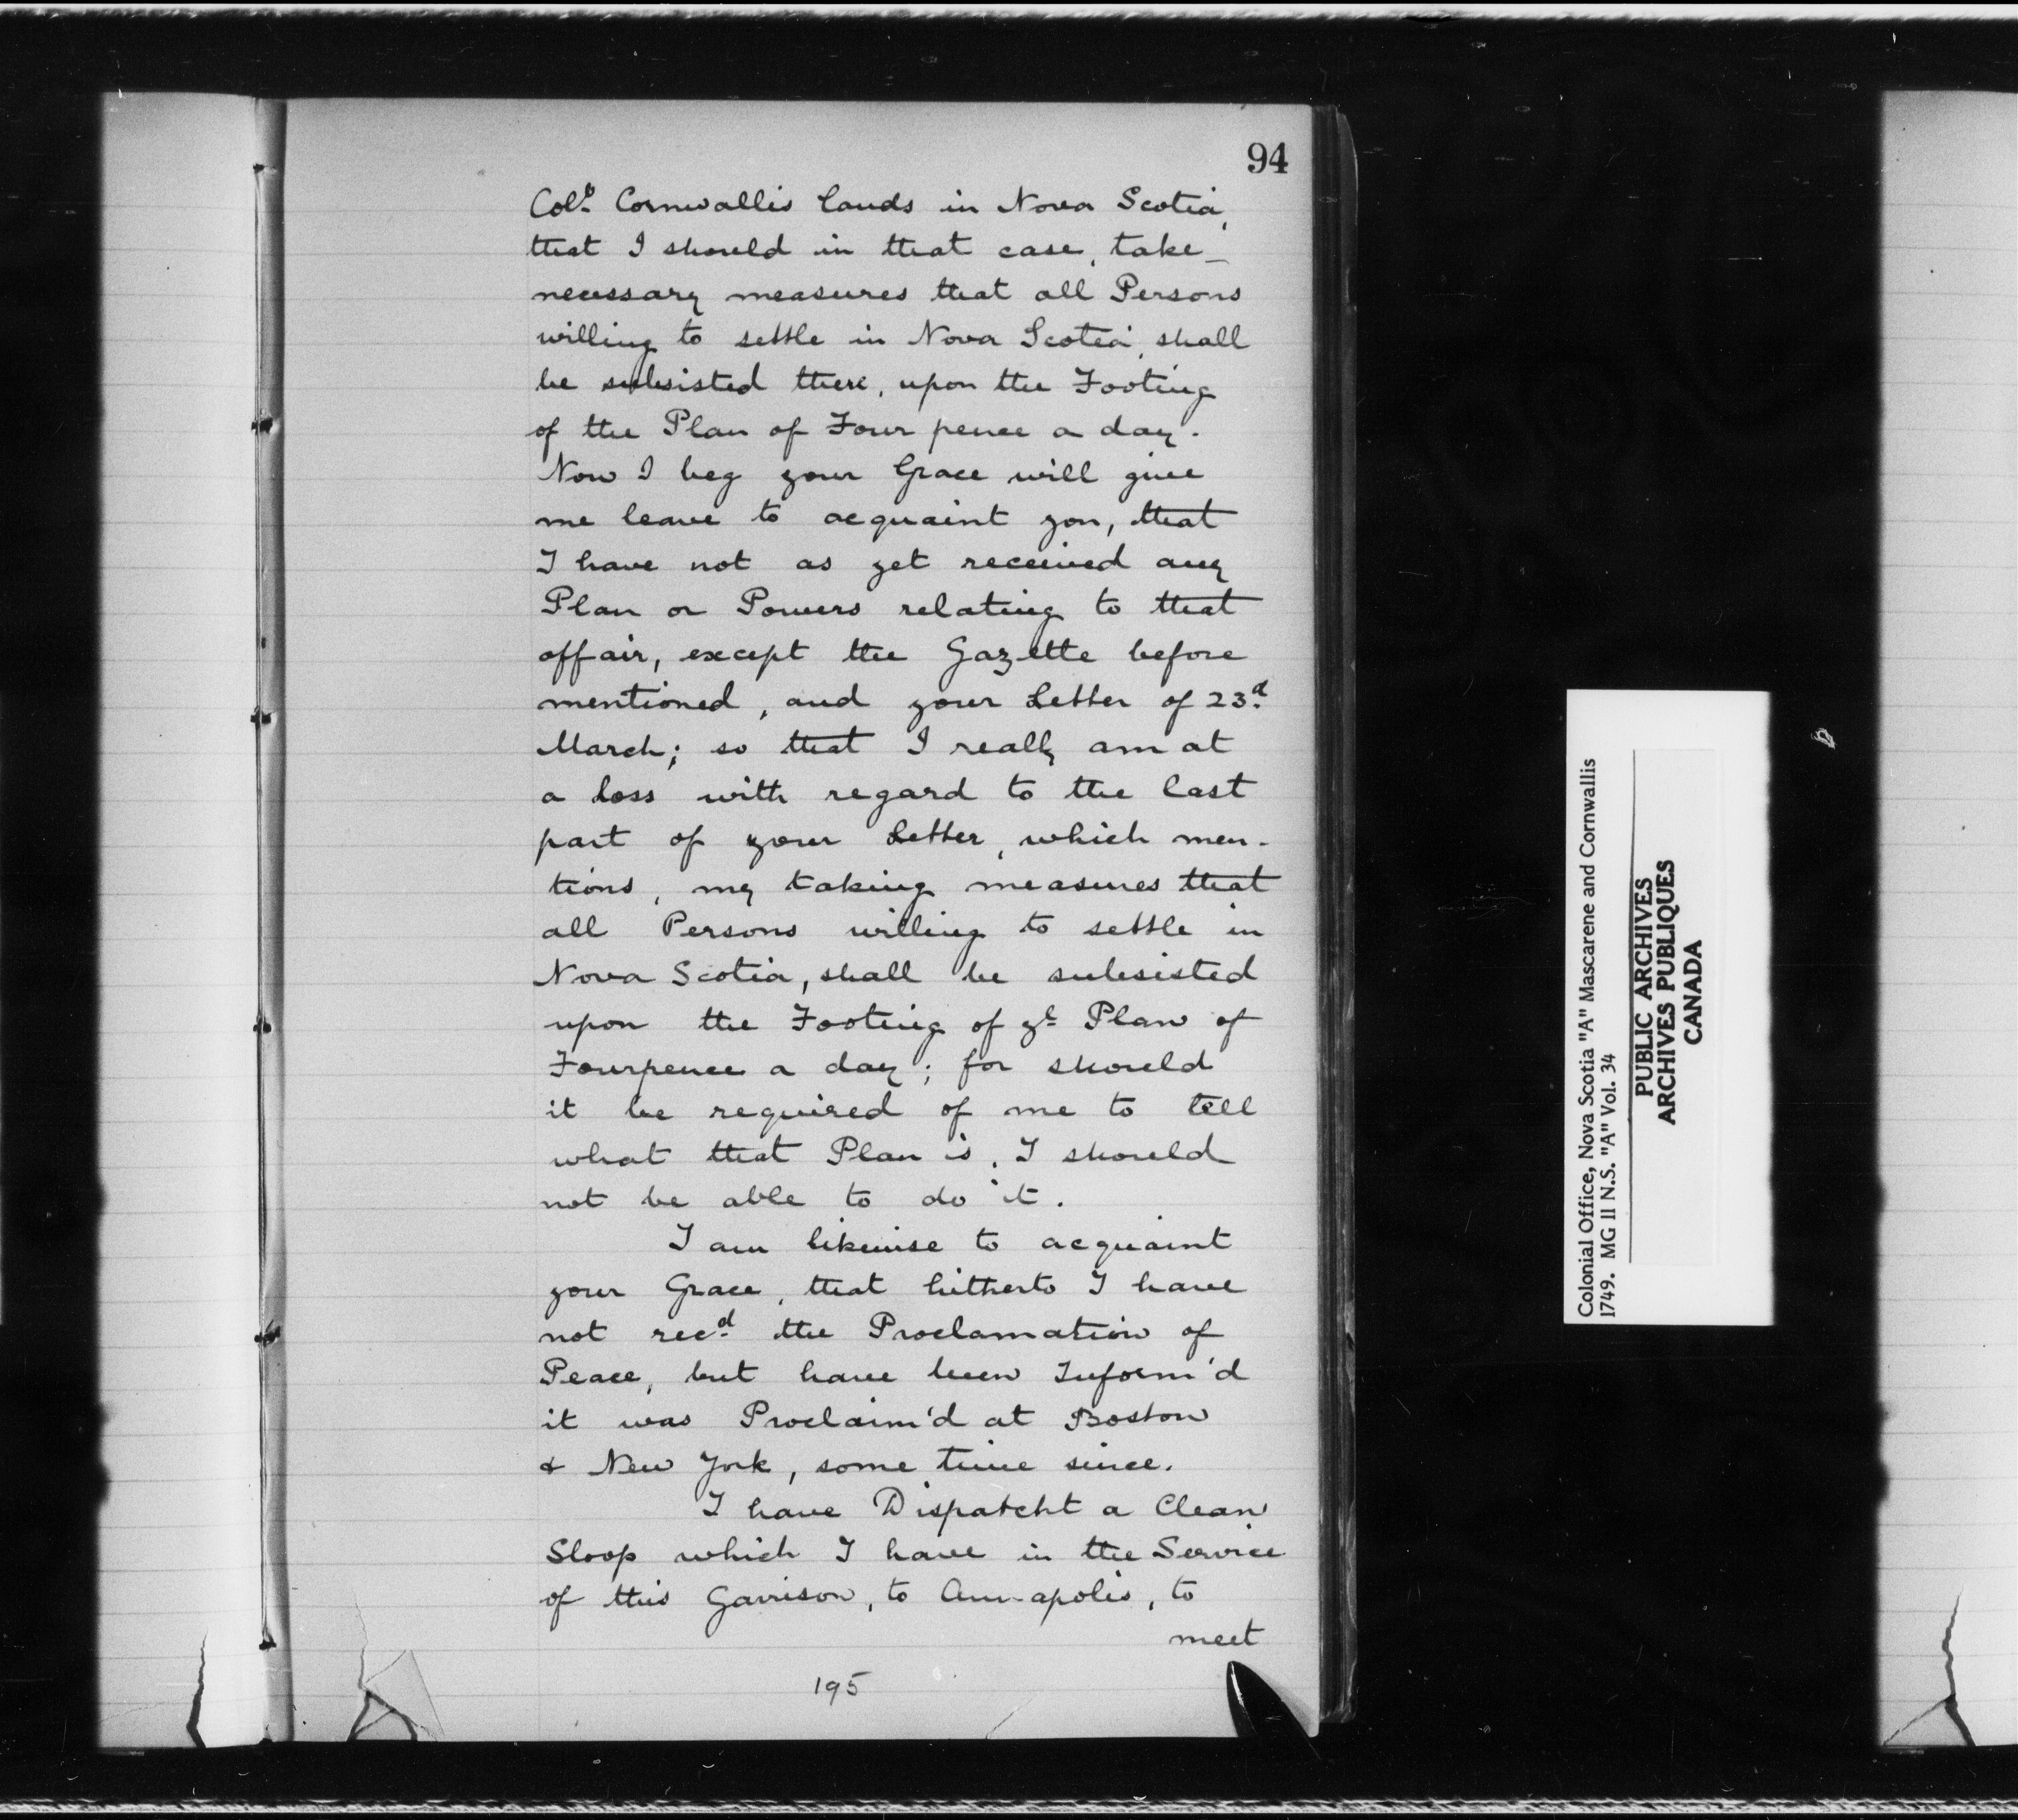 94
Colo. Cornwallis lands in Nova Scotia,
that I should in that case, take
necessary measures that all Persons
willing to settle in Nova Scotia, shall
be subsisted there, upon the Footing
of the Plan of Four pence a day.
Now I beg your Grace will give
me leave to acquaint you, that
I have not as yet received any
Plan or Powers relating to that
affair, except the Gazette before
mentioned, and your Letter of 23.d
March; so that I really am at
a loss with regard to the last
part of your Letter, which men-
tions, my taking measures that
all Persons willing to settle in
Nova Scotia, shall be subsisted
upon the Footing of yt Plan of
Fourpence a day; for should
it be required of me to tell
what that Plan is, I should
not be able to do it.
I am likewise to acquaint
your Grace, that hitherto I have
not recd. the Proclamation of
Peace, but have been Inform'd
it was Proclaim'd at Boston
& New York, some time since.
I have Dispatcht a Clean
Sloop which I have in the Service
of this Garrison, to Annapolis, to
meet
195
Colonial Office, Nova Scotia "A" Mascarene and Cornwallis
1749. MG 11 N.S. "A" Vol. 34
PUBLIC ARCHIVES
ARCHIVES PUBLIQUES
CANADA